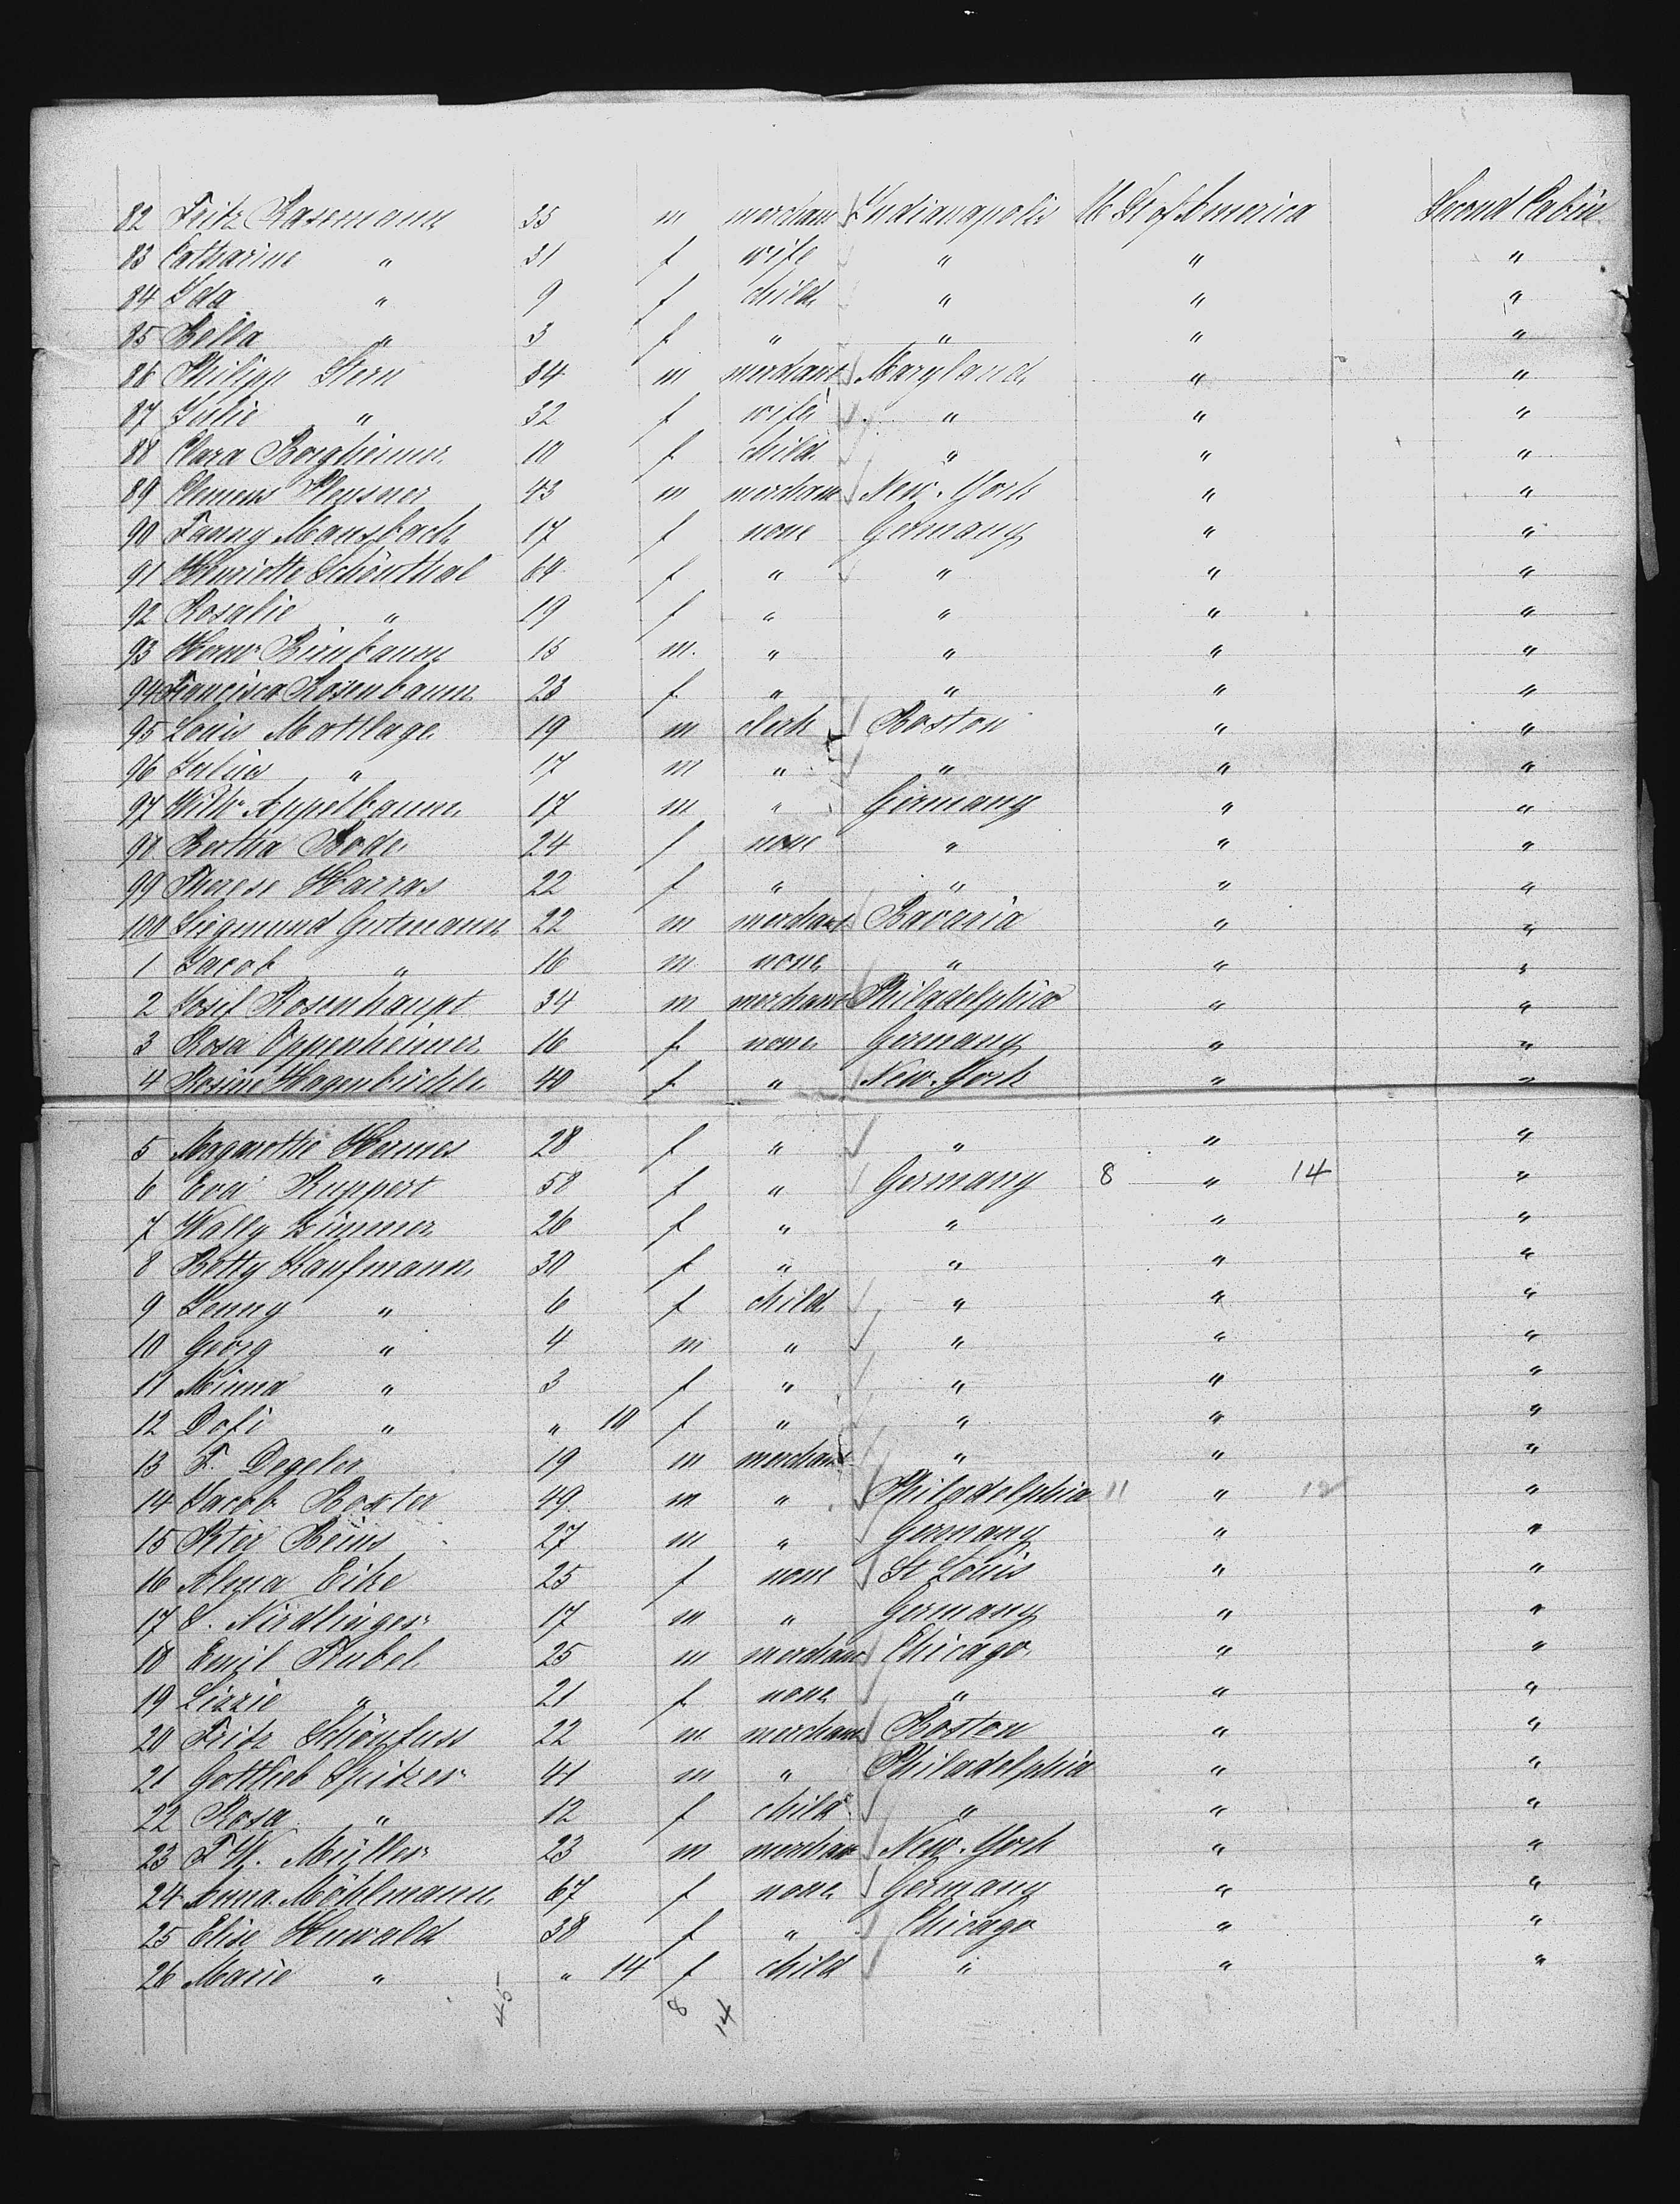 82 Fritz Rasemann 35 m merchant Indianapolis U. St of America Second Cabin
83 Catharine " 31 f wife " " "
84 Ida " 9 f child " " "
85 Bella " 3 f " " " "
86 Philipp Stern 34 m merchant Maryland " "
87 Julie " 32 f wife " " "
88 Clara Bergheimer 10 f child " " "
89 Clemens Pleusner 43 m merchant New-York " "
90 Fanny Mansbach 17 f none Germany " "
91 Henriette Schönthal 64 f " " " "
92 Rosalie " 19 f " " " "
93 Herm Birnbaum 15 m. " " " "
94 Francisca Rosenbaum 23 f " " " "
95 Louis Mottlage 19 m clerk Boston " "
96 Julius " 17 m " " " "
97 Wilh Appelbaum 17 m " Germany " "
98 Bertha Bode 24 f none " " "
99 Therese Harras 22 f " " " "
100 Siegmund Gutmann 22 m merchant Bavaria " "
1 Jacob " 16 m none " " "
2 Josef Rosenhaupt 34 m merchant Philadelphia " "
3 Rosa Oppenheimer 16 f none Germany " "
4 Rosine Hagenbüchle 40 f " New-York " "
5 Margarethe Hermes 28 f " " " "
6 Eva Ruppert 58 f " Germany 8 " 14 "
7 Wally Zimmer 26 f " " " "
8 Betty Kaufmann 30 f " " " "
9 Jenny " 6 f child " " "
10 Georg " 4 m " " " "
11 Minna " 3 f " " " "
12 Dofi " " 10 f " " " "
13 F. Degeler 19 m merchant " " "
14 Jacob Boxter 49 m " Philadelphia 11 " 12 "
15 Peter Beins 27 m " Germany " "
16 Alma Eike 25 f none St Louis " "
17 S. Nördlinger 17 m " Germany " "
18 Emil Kubel 25 m merchant Chicago " "
19 Lizzie " 21 f none " " "
20 Fritz Schönfuss 22 m merchant Boston " "
21 Gottlieb Spitzer 41 m " Philadelphia " "
22 Rosa " 12 f child " " "
23 F. W. Müller 23 m merchant New-York " "
24 Anna Möhlmann 67 f none Germany " "
25 Elise Huwald 38 f " Chicago " "
26 Marie " " 14 f child " " "
45 8 14